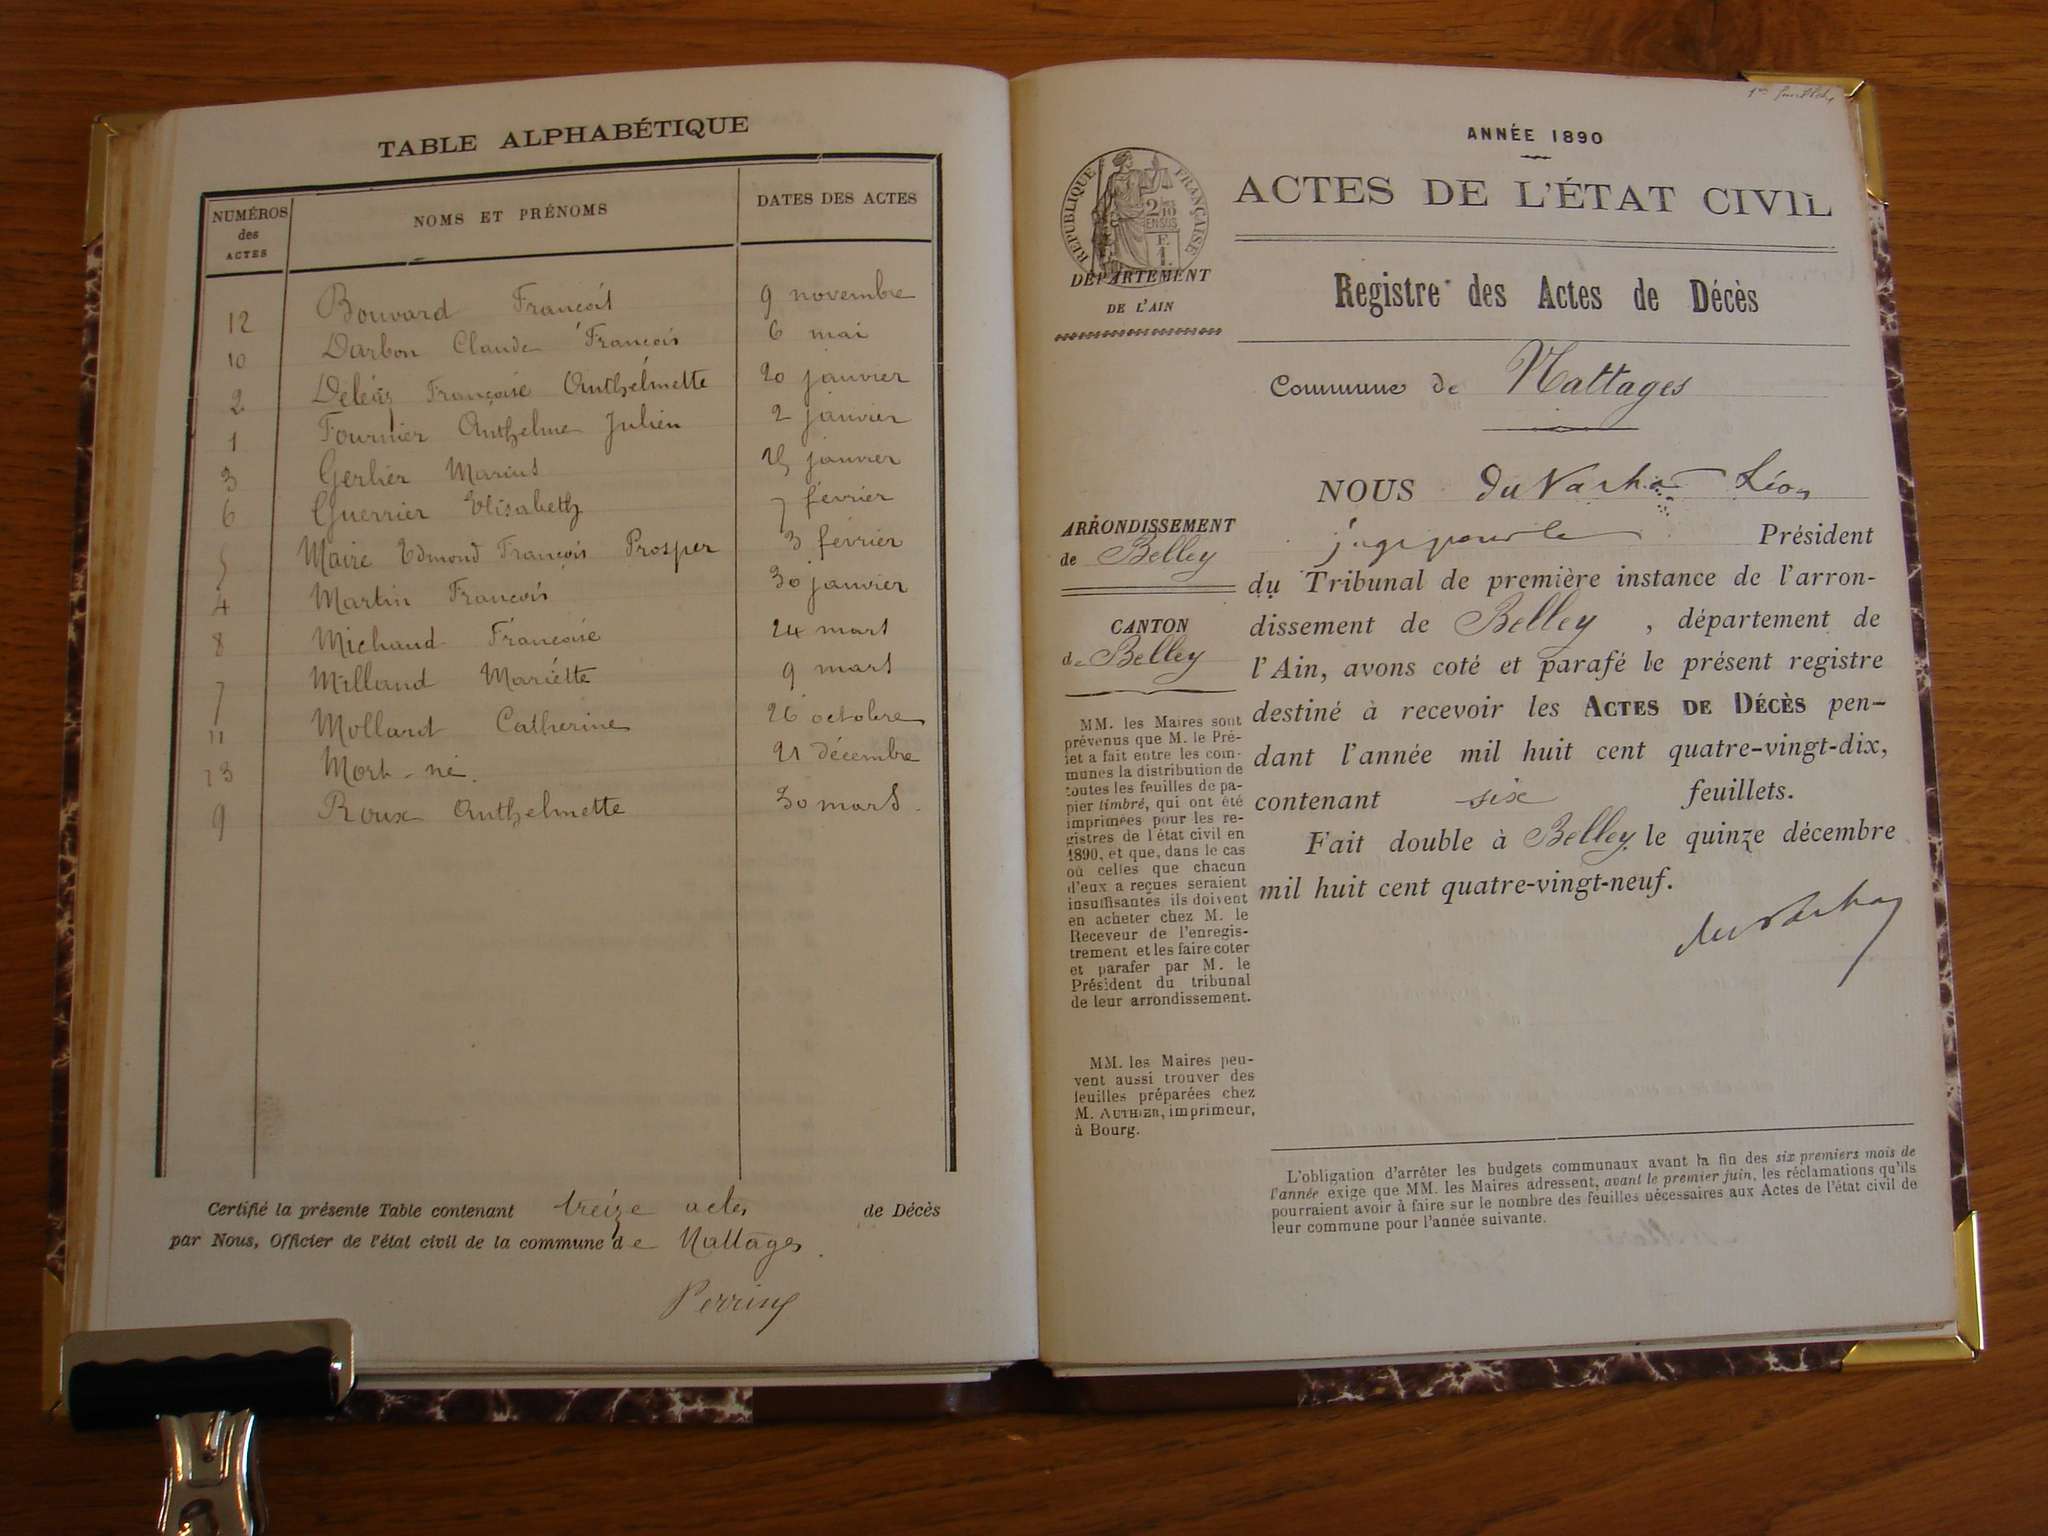 TABLE ALPHABÉTIQUE
NUMÉROS des ACTES NOMS ET PRÉNOMS DATES DES ACTES
12 Bouvard François 9 novembre
10 Darbon Claude François 6 mai
2 Françoise Anthelmette 20 janvier
1 Fournier Anthelme Julien 2 janvier
3 Gerlier Marius janvier
6 Guerrier Elisabeth 7 février
5 Maire Edmond François Prosper 3 février
4 Martin François 30 janvier
8 Michaud Françoise 24 mars
7 Milland Mariette 9 mars
11 Mollard Catherine 26 octobre
13 Mort-né. 21 décembre
9 Roux Anthelmette 30 mars.
Certifié la présente Table contenant treize actes de Décès
par Nous, Officier de l'état civil de la commune de Nattages.
Perrin
1er feuillet
ANNÉE 1890
RÉPUBLIQUE FRANÇAISE
2/10 EN SUS
E
1
ACTES DE L'ÉTAT CIVIL
DÉPARTEMENT
DE L'AIN
Registre des Actes de Décès
Commune de Nattages
NOUS Léon
juge pour le Président
ARRONDISSEMENT
de Belley
CANTON
de Belley
du Tribunal de première instance de l'arron-
dissement de Belley, département de
l'Ain, avons coté et parafé le présent registre
destiné à recevoir les ACTES DE DÉCÈS pen-
dant l'année mil huit cent quatre-vingt-dix,
contenant six feuillets.
Fait double à Belley, le quinze décembre
mil huit cent quatre-vingt-neuf.
MM. les Maires sont
prévenus que M. le Pré-
fet a fait entre les com-
munes la distribution de
toutes les feuilles de pa-
pier timbré, qui ont été
imprimées pour les re-
gistres de l'état civil en
1890, et que, dans le cas
où celles que chacun
d'eux a reçues seraient
insuffisantes, ils doivent
en acheter chez M. le
Receveur de l'enregis-
trement et les faire coter
et parafer par M. le
Président du tribunal
de leur arrondissement.
MM. les Maires peu-
vent aussi trouver des
feuilles préparées chez
M. AUTHIER, imprimeur,
à Bourg.
L'obligation d'arrêter les budgets communaux avant la fin des six premiers mois de
l'année exige que MM. les Maires adressent, avant le premier juin, les réclamations qu'ils
pourraient avoir à faire sur le nombre des feuilles nécessaires aux Actes de l'état civil de
leur commune pour l'année suivante.